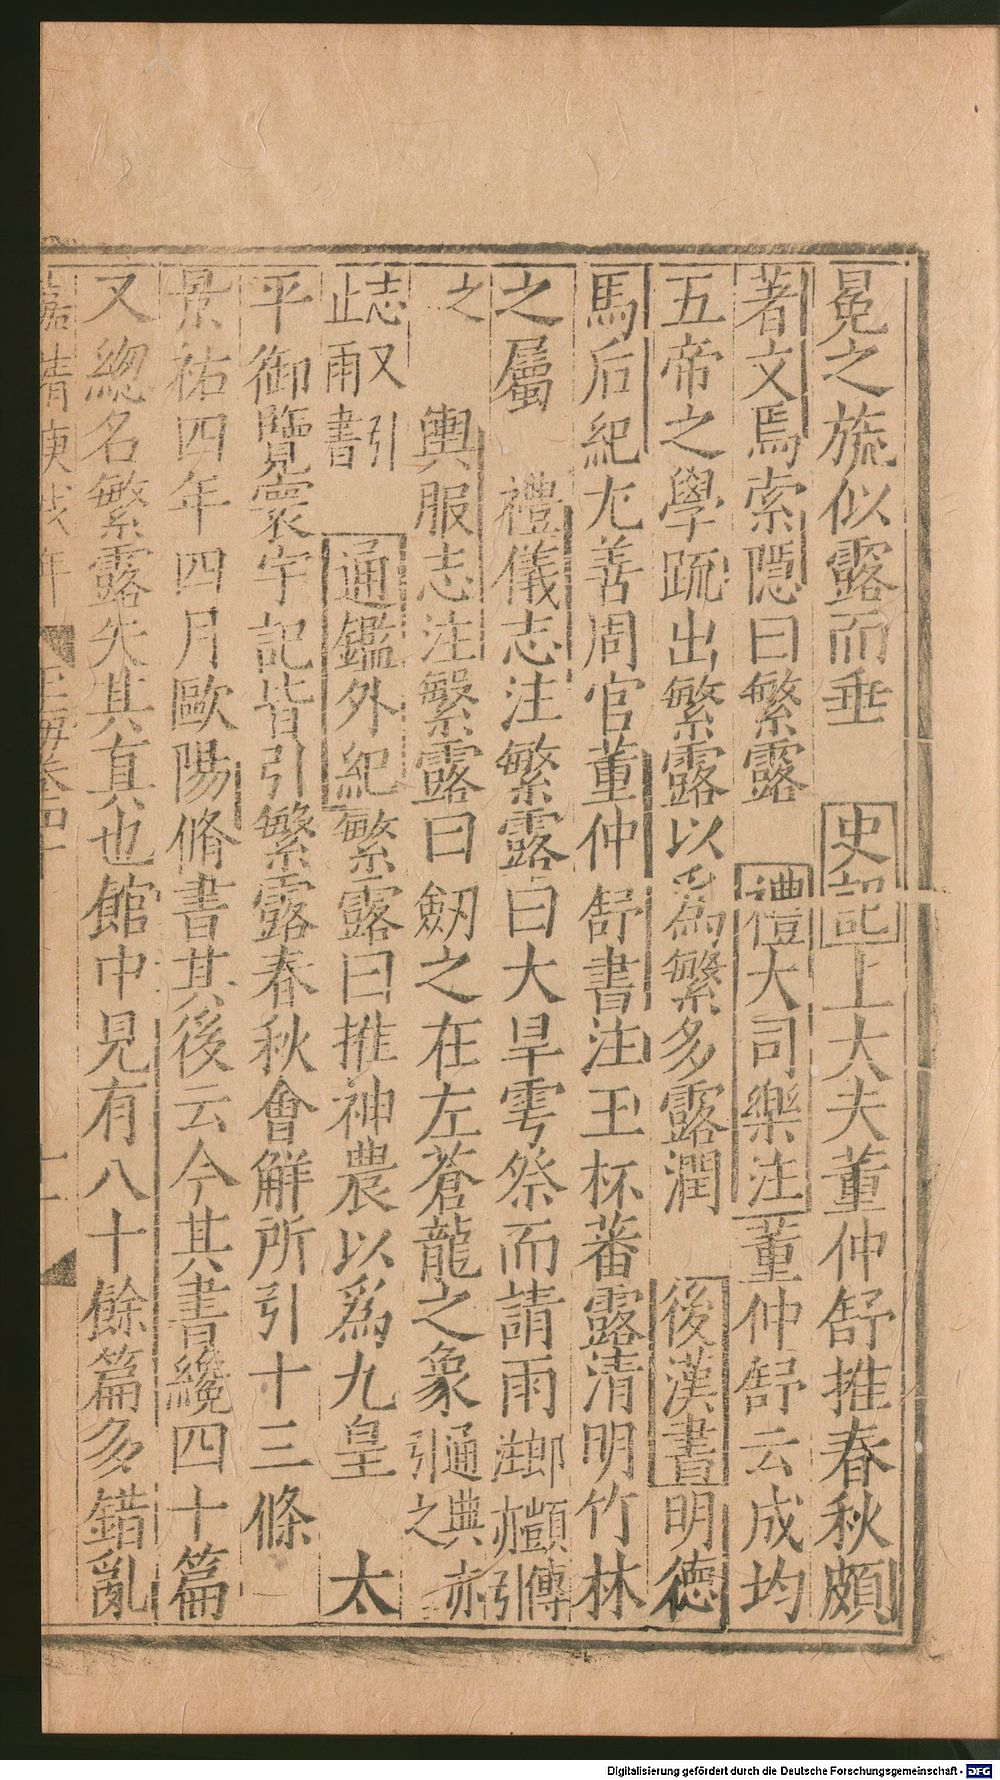 冕之旒似露而垂　史記上大夫董仲舒推春秋頗
著文焉索隱曰繁露　禮大司樂注董仲舒云成均
五帝之學䟽出繁露以爲繁多露潤　後漢書明德
馬后紀尤善周官董仲舒書注玉杯蕃露清明竹林
之屬　禮儀志注繁露曰大旱雩祭而請雨郎顗傳注亦引
之　輿服志注繁露曰劒之在左蒼龍之象通典亦引之
志又引止雨書　通鑑外紀繁露曰推神農以爲九皇　太
平御覽寰宇記皆引繁露春秋會解所引十三條
景祐四年四月歐陽脩書其後云今其書纔四十篇
又總名繁露失其真也館中見有八十餘篇多錯亂
嘉靖庚戌年　玉海卷四十　十一
Digitalisierung gefördert durch die Deutsche Forschungsgemeinschaft - DFG